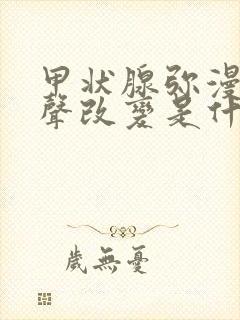 甲状腺弥漫
聲改變是什
歲無憂